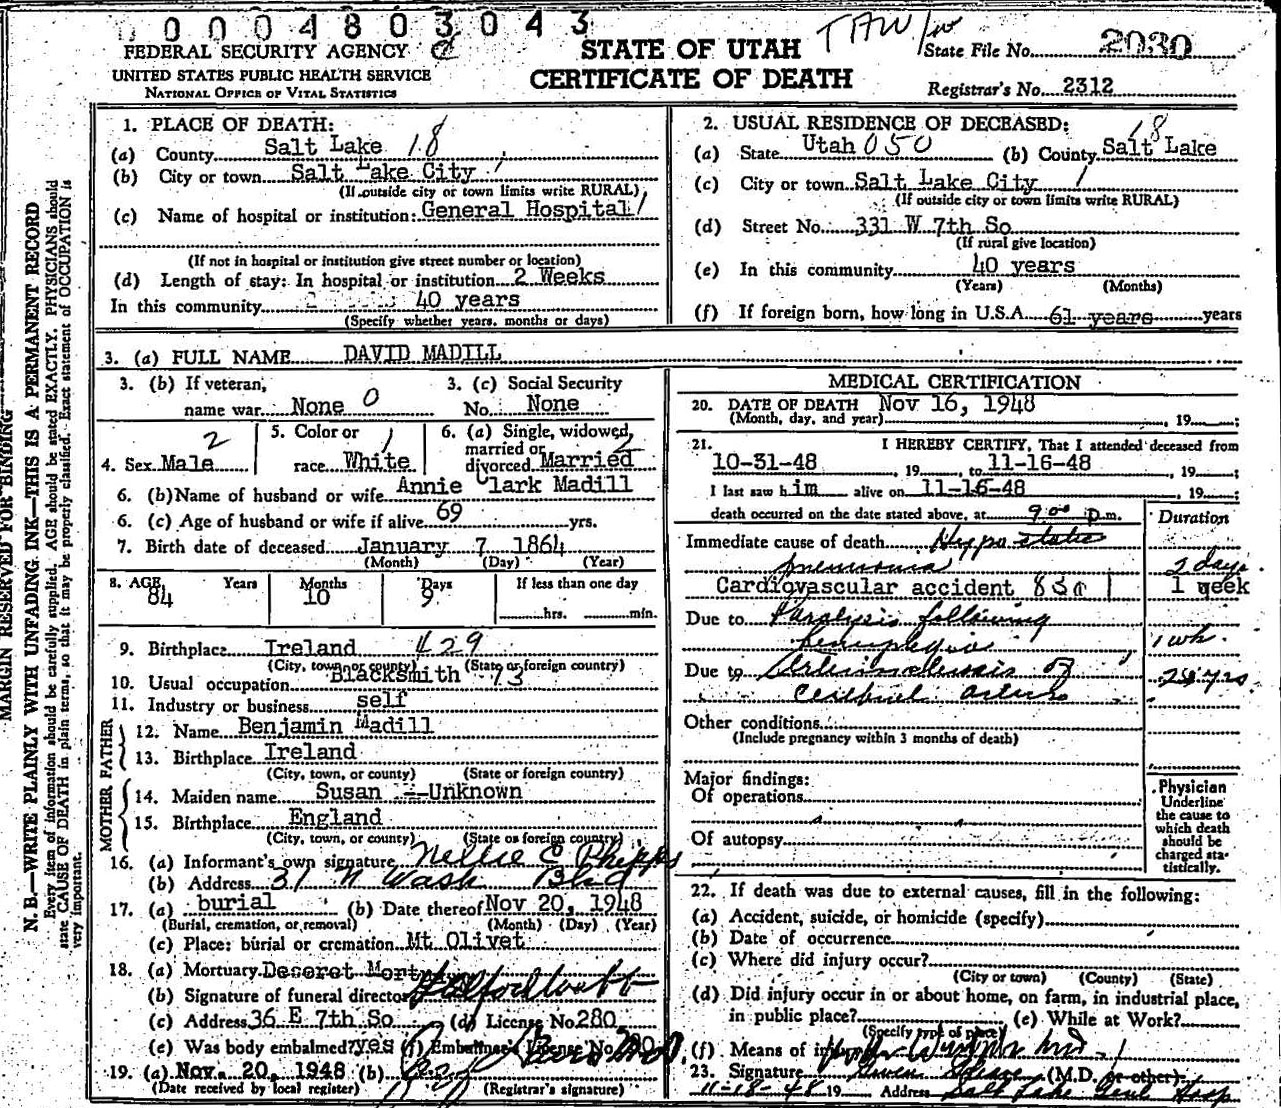 0004803043
FEDERAL SECURITY AGENCY
UNITED STATES PUBLIC HEALTH SERVICE
NATIONAL OFFICE OF VITAL STATISTICS
STATE OF UTAH
CERTIFICATE OF DEATH
State File No. 2030
Registrar's No. 2312
MARGIN RESERVED FOR BINDING
N. B.—WRITE PLAINLY WITH UNFADING INK—THIS IS A PERMANENT RECORD
Every item of information should be carefully supplied. AGE should be stated EXACTLY. PHYSICIANS should
state CAUSE OF DEATH in plain terms, so that it may be properly classified. Exact statement of OCCUPATION is
very important.
1. PLACE OF DEATH:
(a) County Salt Lake 18
(b) City or town Salt Lake City 1
(If outside city or town limits write RURAL)
(c) Name of hospital or institution: General Hospital 1
(If not in hospital or institution give street number or location)
(d) Length of stay: In hospital or institution 2 Weeks
In this community 40 years
(Specify whether years, months or days)
2. USUAL RESIDENCE OF DECEASED:
(a) State Utah 050 (b) County Salt Lake 18
(c) City or town Salt Lake City 1
(If outside city or town limits write RURAL)
(d) Street No. 331 W 7th So
(If rural give location)
(e) In this community 40 years
(Years) (Months)
(f) If foreign born, how long in U.S.A. 61 years years
3. (a) FULL NAME DAVID MADILL
3. (b) If veteran,
name war None 0
3. (c) Social Security
No. None
4. Sex Male 2
5. Color or
race White 1
6. (a) Single, widowed,
married or
divorced Married 2
6. (b) Name of husband or wife Annie Clark Madill
6. (c) Age of husband or wife if alive 69 yrs.
7. Birth date of deceased January 7 1864
(Month) (Day) (Year)
8. AGE Years Months Days If less than one day
84 10 9 hrs. min.
9. Birthplace Ireland 429
(City, town or county) (State or foreign country)
10. Usual occupation Blacksmith 73
11. Industry or business self
FATHER
12. Name Benjamin Madill
13. Birthplace Ireland
(City, town, or county) (State or foreign country)
MOTHER
14. Maiden name Susan --Unknown
15. Birthplace England
(City, town, or county) (State or foreign country)
16. (a) Informant's own signature Nellie C Phipps
(b) Address 31 N Wash Blvd
17. (a) burial (b) Date thereof Nov 20, 1948
(Burial, cremation, or removal) (Month) (Day) (Year)
(c) Place: burial or cremation Mt Olivet
18. (a) Mortuary Deseret Mort
(b) Signature of funeral director
(c) Address 36 E 7th So (d) License No. 280
(e) Was body embalmed? yes (f) Embalmer's License No.
19. (a) Nov. 20, 1948 (b)
(Date received by local register) (Registrar's signature)
MEDICAL CERTIFICATION
20. DATE OF DEATH Nov 16, 1948
(Month, day, and year) , 19 ;
21. I HEREBY CERTIFY, That I attended deceased from
10-31-48 , 19 , to 11-16-48 , 19 ;
I last saw him alive on 11-16-48 , 19 ;
death occurred on the date stated above, at 9:00 p.m.
Duration
Immediate cause of death Hypostatic
pneumonia 2 days
Cardiovascular accident 83a 1 week
Due to Paralysis following
hemiplegia 1 wk.
Due to Arteriosclerosis of
cerebral arteries
Other conditions
(Include pregnancy within 3 months of death)
Major findings:
Of operations
Of autopsy
Physician
Underline
the cause to
which death
should be
charged sta-
tistically.
22. If death was due to external causes, fill in the following:
(a) Accident, suicide, or homicide (specify)
(b) Date of occurrence
(c) Where did injury occur?
(City or town) (County) (State)
(d) Did injury occur in or about home, on farm, in industrial place,
in public place? (e) While at Work?
(Specify type of place)
(f) Means of injury
23. Signature (M.D. or other)
11-18-48 19 Address Salt Lake Genl Hosp